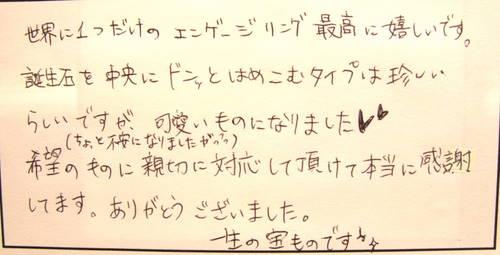 世界に1つだけの エンゲージリング 最高に嬉しいです。
誕生石を中央にドンッとはめこむタイプは珍しい
らしいですが、可愛いものになりました
(ちょっと不安になりましたがっっ)
希望のものに親切に対応して頂けて本当に感謝
してます。ありがとうございました。
一生の宝ものです